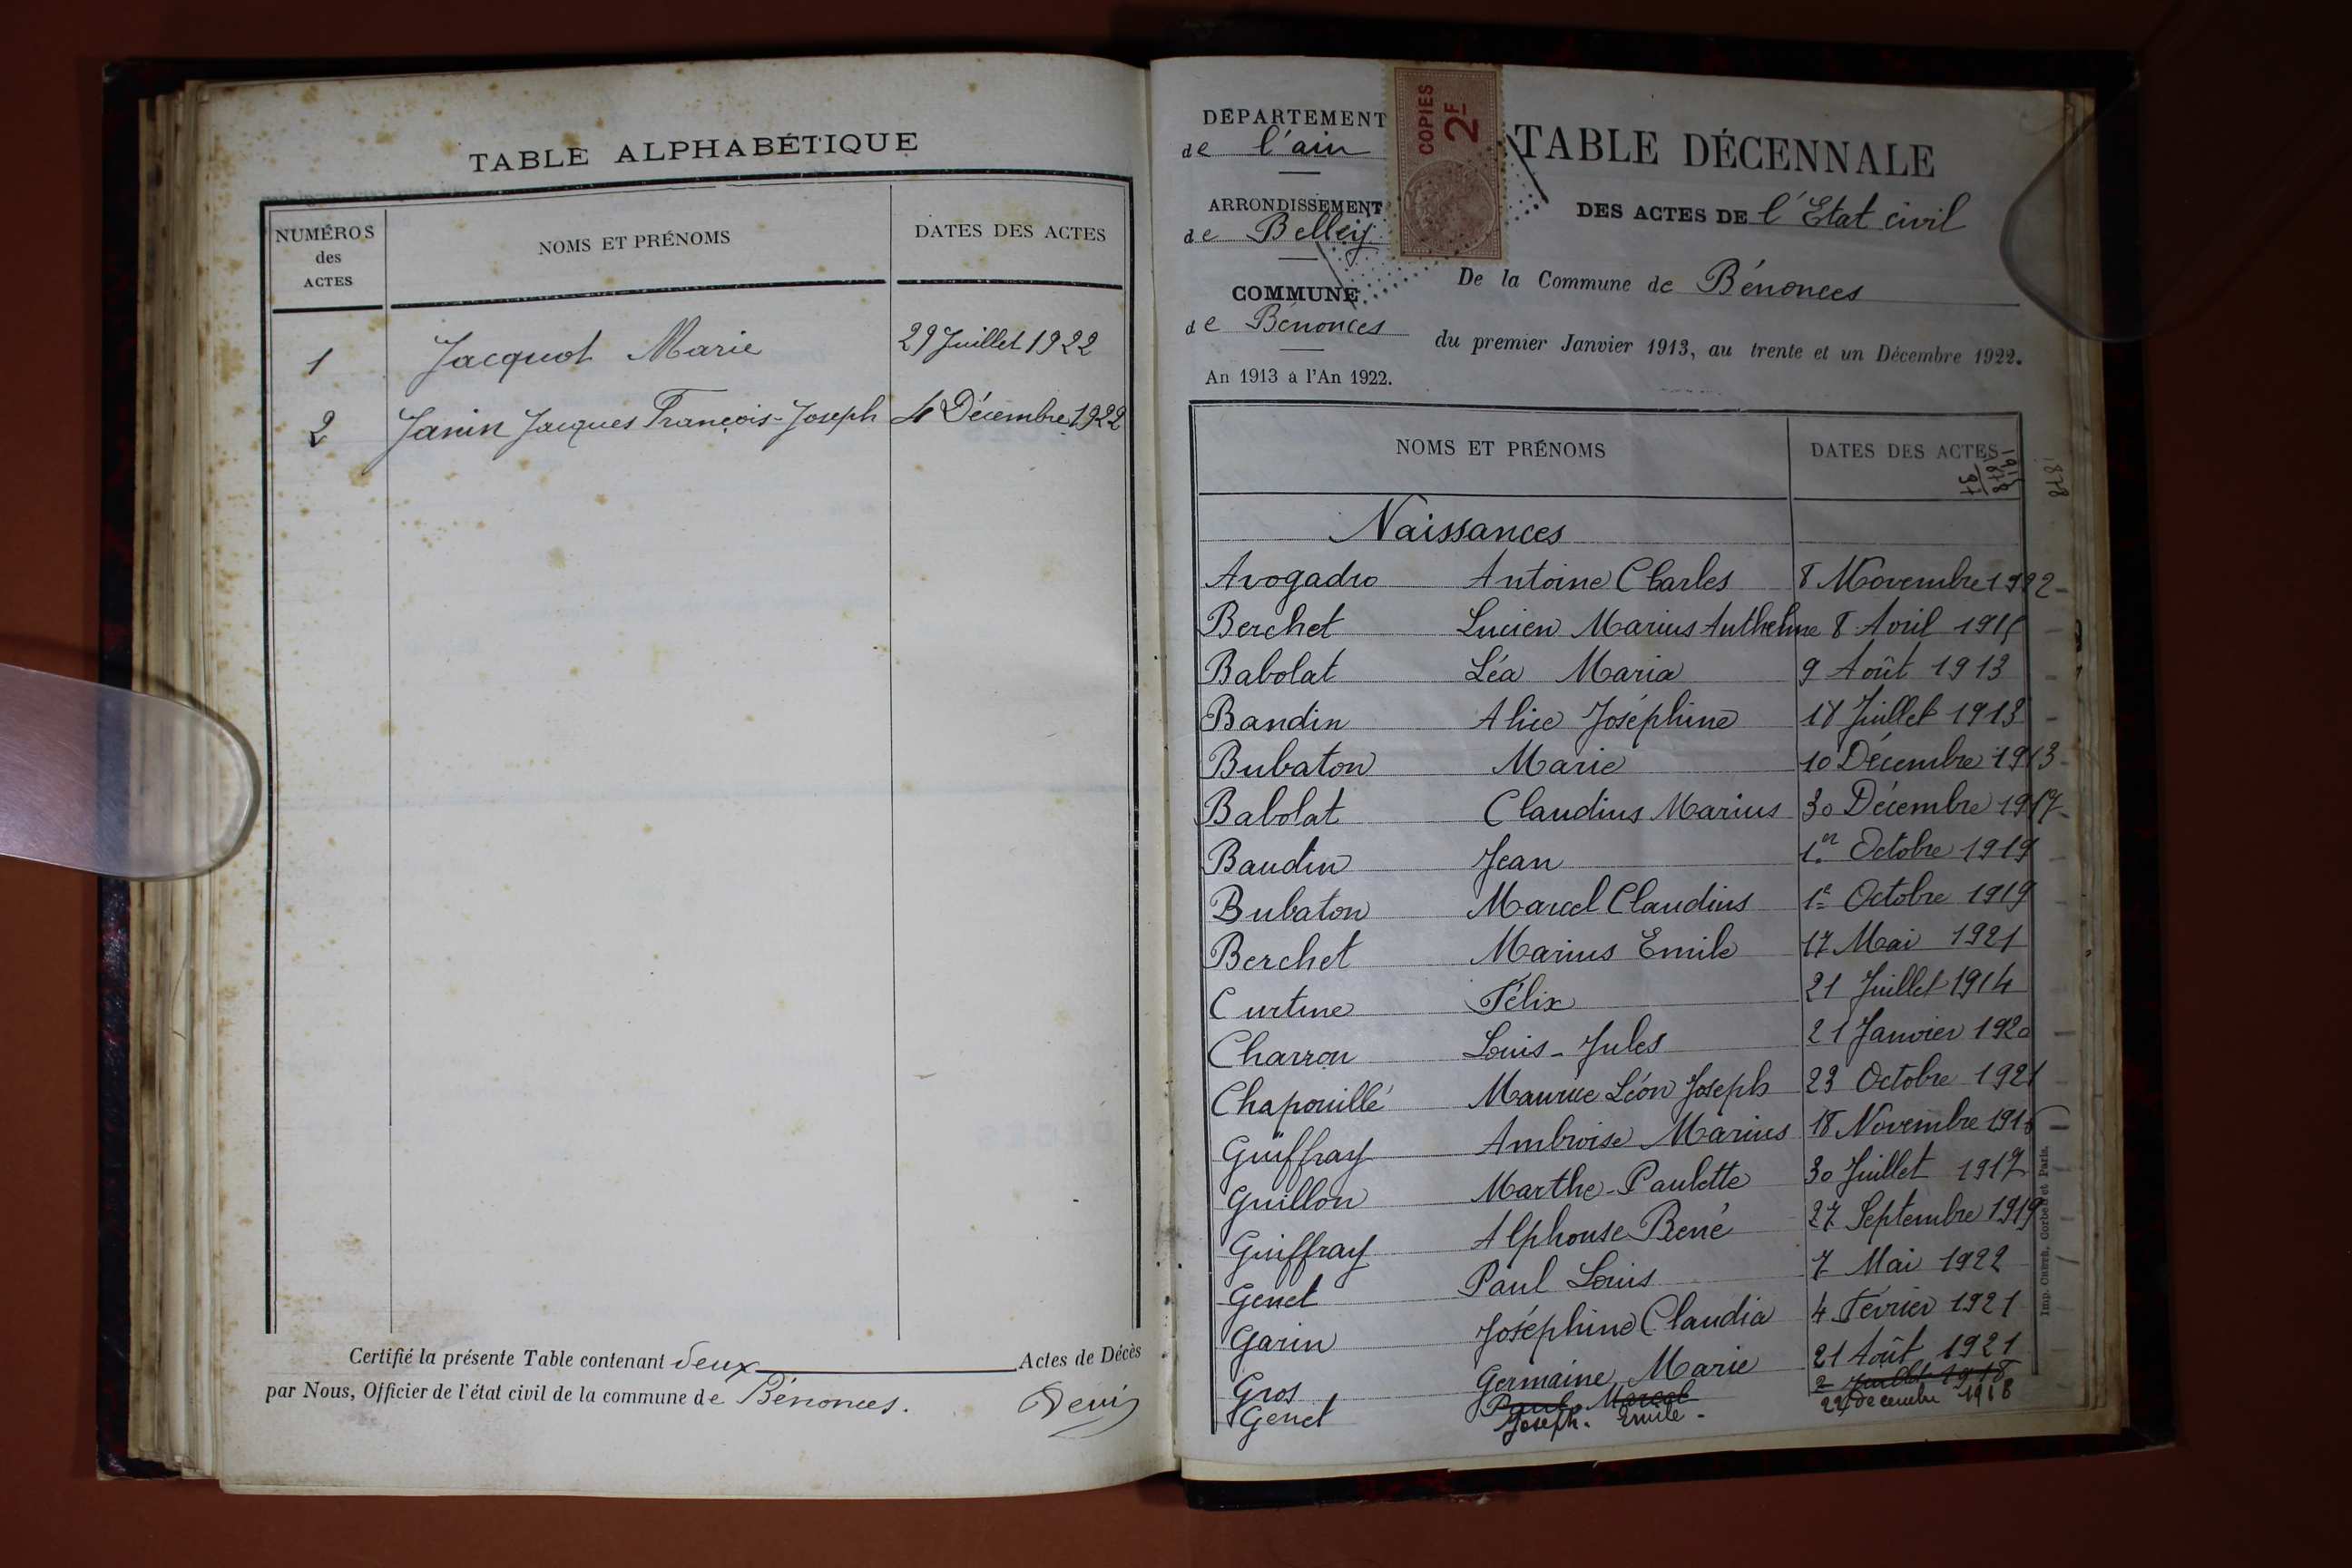 TABLE ALPHABÉTIQUE
NUMÉROS des ACTES NOMS ET PRÉNOMS DATES DES ACTES
1 Jacquot Marie 29 Juillet 1922
2 Janin Jacques François-Joseph 4 Décembre 1922
Certifié la présente Table contenant deux Actes de Décès
par Nous, Officier de l'état civil de la commune de Bénonces.
DEPARTEMENT
de l'ain
ARRONDISSEMENT
de Belley
COMMUNE
de Bénonces
An 1913 à l'An 1922.
COPIES
2F
TABLE DÉCENNALE
DES ACTES DE l'Etat civil
De la Commune de Bénonces
du premier Janvier 1913, au trente et un Décembre 1922.
NOMS ET PRÉNOMS DATES DES ACTES
Naissances
Avogadro Antoine Charles 8 Novembre 1922
Berchet Lucien Marius Anthelme 8 Avril 1915
Babolat Léa Maria 9 Août 1913
Bandin Alice Joséphine 18 Juillet 1913
Bubaton Marie 10 Décembre 1913
Babolat Claudius Marius 30 Décembre 1917
Baudin Jean 1er Octobre 1919
Bubaton Marcel Claudius 1e Octobre 1919
Berchet Marius Emile 17 Mai 1921
Curtine Félix 21 Juillet 1914
Charron Louis-Jules 21 Janvier 1920
Chapouillé Maurice Léon Joseph 23 Octobre 1921
Guiffray Ambroise Marius 18 Novembre 1915
Guillon Marthe-Paulette 30 Juillet 1917
Guiffray Alphonse René 27 Septembre 1919
Genet Paul Louis 7 Mai 1922
Garin Joséphine Claudia 4 Février 1921
Gros Germaine Marie 21 Août 1921
Paul Marcel 2 Juillet 1918
Genet Joseph. Emile. 22 décembre 1918